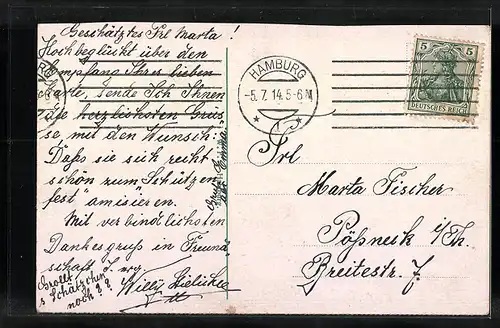 Geschätztes Frl Marta!
Hochbeglückt über den
Empfang Ihrer lieben
Karte, sende Ich Ihnen
die herzlichsten Grüs-
se mit den Wunsch:
Daß sie sich recht
schön zum Schützen-
fest" amisieren.
Mit verbindlichsten
Dankesgruß in Freund-
schaft
Willy
Grollt
Schätzchen
noch??
HAMBURG
-5.7.14.5-6N
* *
5 5
DEUTSCHES REICH
Frl
Marta Fischer
Pößneck i/Th.
Breitestr. 7.